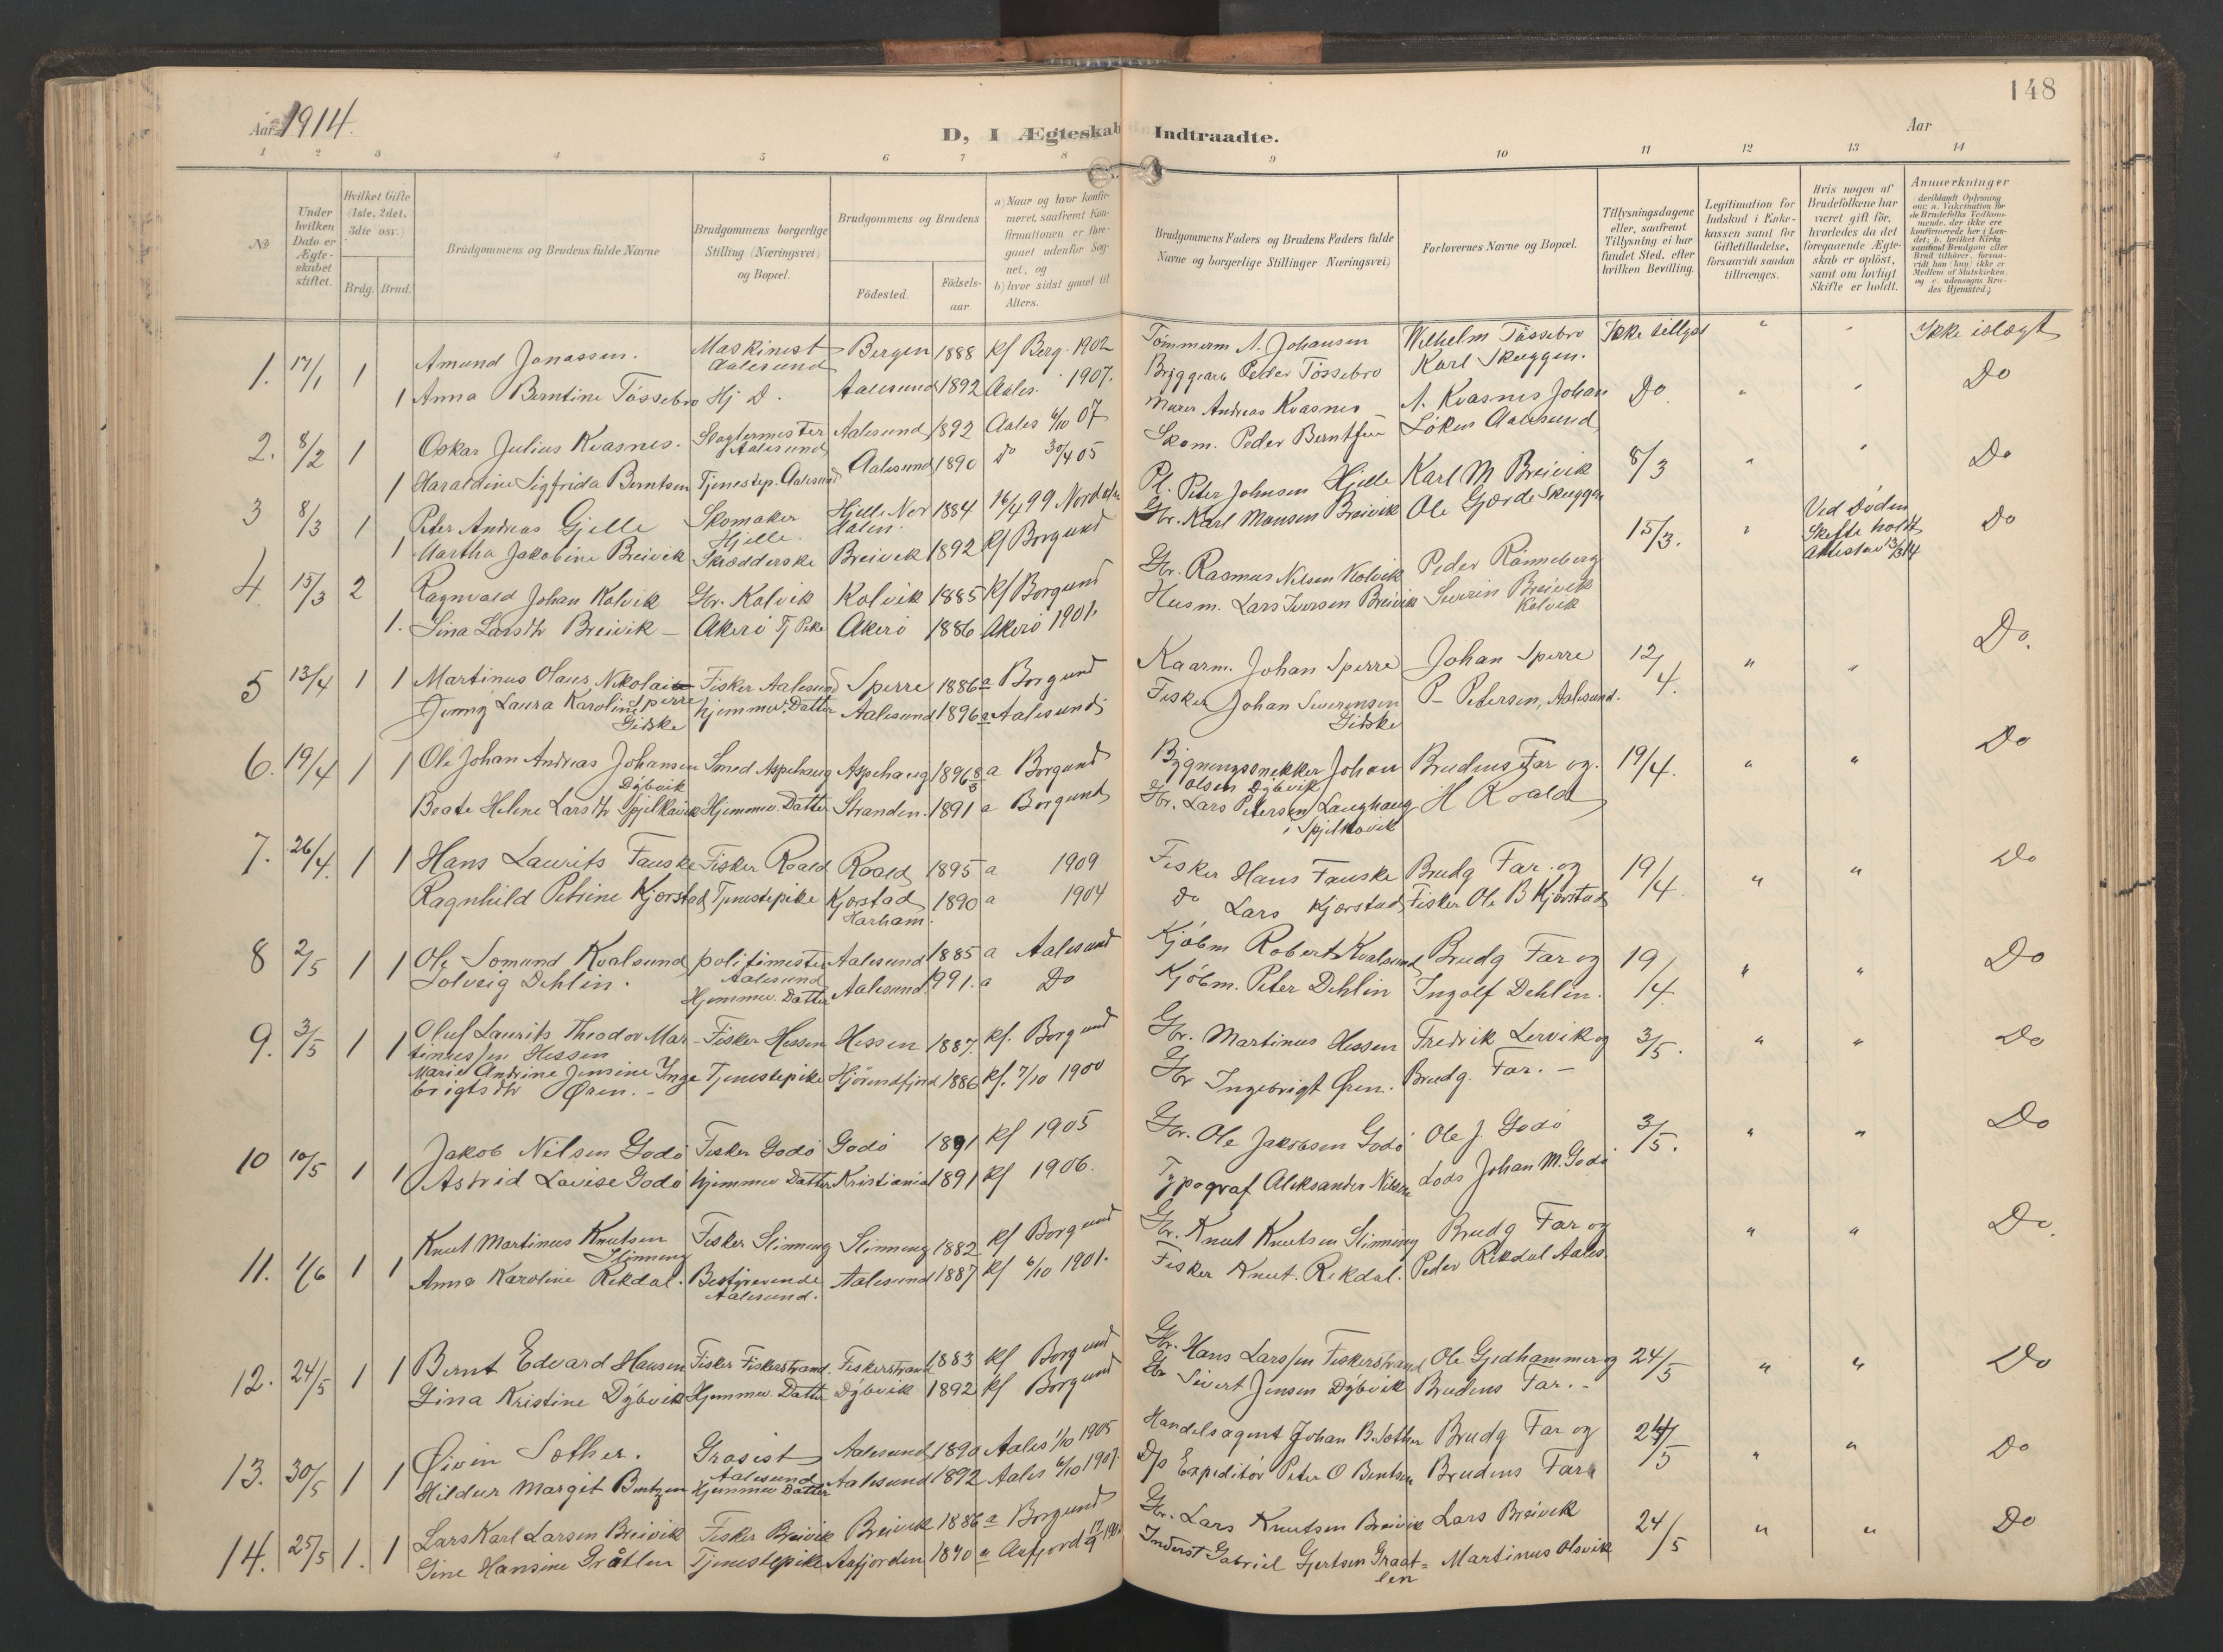 148
Aar 1914.
D, I Ægteskab Indtraadte.
Aar
1 2 3 4 5 6 7 8 9 10 11 12 13 14
No
Under hvilken Dato er Ægteskabet stiftet.
Hvilket Gifte (1ste, 2det, 3die osv.)
Brdg. Brud.
Brudgommens og Brudens fulde Navne
Brudgommens borgerlige Stilling (Næringsvei) og Bopæl.
Brudgommens og Brudens
Fødested.
Fødselsaar
a) Naar og hvor konfirmeret, saafremt Konfirmationen er foregaaet udenfor Sognet, og
b) hvor sidst gaaet til Alters.
Brudgommens Faders og Brudens Faders fulde Navne og borgerlige Stillinger Næringsvei)
Forlovernes Navne og Bopæl.
Tillysningsdagene eller, saafremt Tillysning ei har fundet Sted, efter hvilken Bevilling.
Legitimation for Indskud i Enkekassen samt for Giftetilladelse, forsaavidt saadan tiltrænges.
Hvis nogen af Brudefolkene har været gift før, hvorledes da det foregaaende Ægteskab er opløst, samt om lovligt Skifte er holdt.
Anmerkninger (deriblandt Oplysning om: a. Vakcination for de Brudefolks Vedkommende, der ikke ere konfirmerede her i Landet; b. hvilket Kirkesamfund Brudgom eller Brud tilhører, forsaavidt han (hun) ikke er Medlem af Statskirken, og c. udensogns Brudes Hjemsted.)
1. 17/1 1 Amund Jonassen. Maskinist Aalesund Bergen 1888 kf Berg. 1902 Tømmerm A. Johansen Wilhelm Tøssebro Ikke tillyst " " Ikke islægt
1 Anna Berntine Tøssebro Hj D. Aalesund 1892 Aales. 1907. Bryggearb Peder Tøssebro Karl Skuggen.
2. 8/2 1 Oskar Julius Kvasnes. Slagtermester Aalesund Aalesund 1892 Aales 6/10 07 Murer Andreas Kvasnes A. Kvasnes Johan Do " " Do
1 Haraldine Sigfrida Berntsen Tjenestep. Aalesund Aalesund 1890 do 30/4 05 Skom. Peder Berntsen Løken Aalesund
3 8/3 1 Peter Andreas Gjelle Skomaker Hjelle. Hjelle Nordalen. 1884 16/4 99 Nord Pl. Peter Johnsen Hjelle Karl M Breivik 8/3 " " Do
1 Martha Jakobine Breivik Skrædderske Breivik 1892 kf Borgund Gbr. Karl Monsen Breivik Ole Gjærde Skuggen
4. 15/3 2 Ragnvald Johan Kolvik Gbr. Kolvik Kolvik 1885 kf Borgund Gbr. Rasmus Nilsen Kolvik Peder Rønneberg 15/3. " Ved Døden Skifte holdt Attesteret 13/3 14 Do
1. Lina Larsdtr Breivik Akerø Tj Pike Akerø 1886 Akerø 1901. Husm. Lars Iversen Breivik Severin Breivik Kolvik
5 13/4 1 1 Martinus Olaus Nikolai Sperre Fisker Aalesund Sperre 1886 a Borgund Kaarm. Johan Sperre Johan Sperre 12/4. " " Do.
Jenny Laura Karoline Giske hjemmev. Datter Aalesund 1896 a Aalesund Fisker Johan Severinsen Giske P. Petersen, Aalesund.
6. 19/4 1 1 Ole Johan Andreas Johansen Dybvik Smed Aspehaug Aspehaug 1896 a Borgund Bygningssnekker Johan Olsen Dybvik Brudens Far og 19/4. " " Do
Beate Helene Larsdtr Spjelkavik Hjemmev. Datter Stranden. 1891 a Borgund Gbr. Lars Petersen Langhaug i Spjelkavik H Roald
7. 26/4. 1 1 Hans Laurits Fauske Fisker Roald Roald 1895 a 1909 Fisker Hans Fauske Brudg Far og 19/4. " " Do
Ragnhild Petrine Kjørstad Tjenestepike Kjørstad Harham. 1890 a 1904 do Lars Kjørstad Fisker Ole B Kjørstad
8 2/5 1 1 Ole Somund Kvalsund politimester Aalesund Aalesund 1885 a Aalesund Kjøbm Robert Kvalsund Brudg Far og 19/4. " " Do
Solveig Dehlin. Hjemmev. Datter Aalesund. 1991. a Do Kjøbm. Peter Dehlin Ingolf Dehlin.
9. 3/5 1 1 Oluf Laurits Theodor Martinussen Hessen Fisker Hessen Hessen 1887. kf. Borgund Gbr. Martinus Hessen Fredrik Lervik og 3/5. " " Do
Marie Andrine Jensine Ingebrigtsdtr Øren. Tjenestepike Hjørundfjord 1886 kf. 7/10 1900 Gbr Ingebrigt Øren. Brudg. Far.
10 10/5 1 1 Jakob Nilsen Godø Fisker Godø Godø 1891 kf 1905 Gbr. Ole Jakobsen Godø Ole J. Godø 3/5. " " Do
Astrid Lovise Godø hjemmev Datter Kristiania 1891 kf 1906. Typograf Aleksander Nilsen Lods Johan M. Godø
11. 1/6 1 1 Knut Martinus Knutsen Slinning Fisker Slinning Slinning 1882 kf Borgund Gbr. Knut Knutsen Slinning Brudg Far og " " Do.
Anna Karoline Rekdal. Bestyrerinde Aalesund. Aalesund 1887 kf 6/10 1901. Fisker Knut. Rekdal. Peder Rekdal Aales
12. 24/5 1 1 Bernt Edvard Hansen Fisker Fiskerstrand. Fiskerstrand 1883 kf Borgund Gbr. Hans Larssen Fiskerstrand Ole Gjedhammer og 24/5 " " Do
Gina Kristine Dybvik Hjemmev. Datter Dybvik 1892 kf Borgund Gbr Sivert Jensen Dybvik Brudens Far.
13. 30/5 1 1 Øivin Sother. Grosist Aalesund Aalesund 1890 Aales 1/10 1905 Handelsagent Johan B. Sother Brudg Far og 24/5 " " Do
Hildur Margit Bentzen Hjemmev Datter Aalesund 1892 Aales 6/10 1907. D/s Expeditør Peter O Bentsen Brudens Far
14. 25/5 1. 1 Lars Karl Larsen Breivik Fisker Breivik Breivik 1886 a Borgund Gbr. Lars Knutsen Breivik Lars Breivik 24/5 " " Do
Gine Hansine Gråtlen Tjenestepike Aafjorden 1890 a Aafjord Inderst Gabriel Gjertsen Graatlen Martinus Olsvik